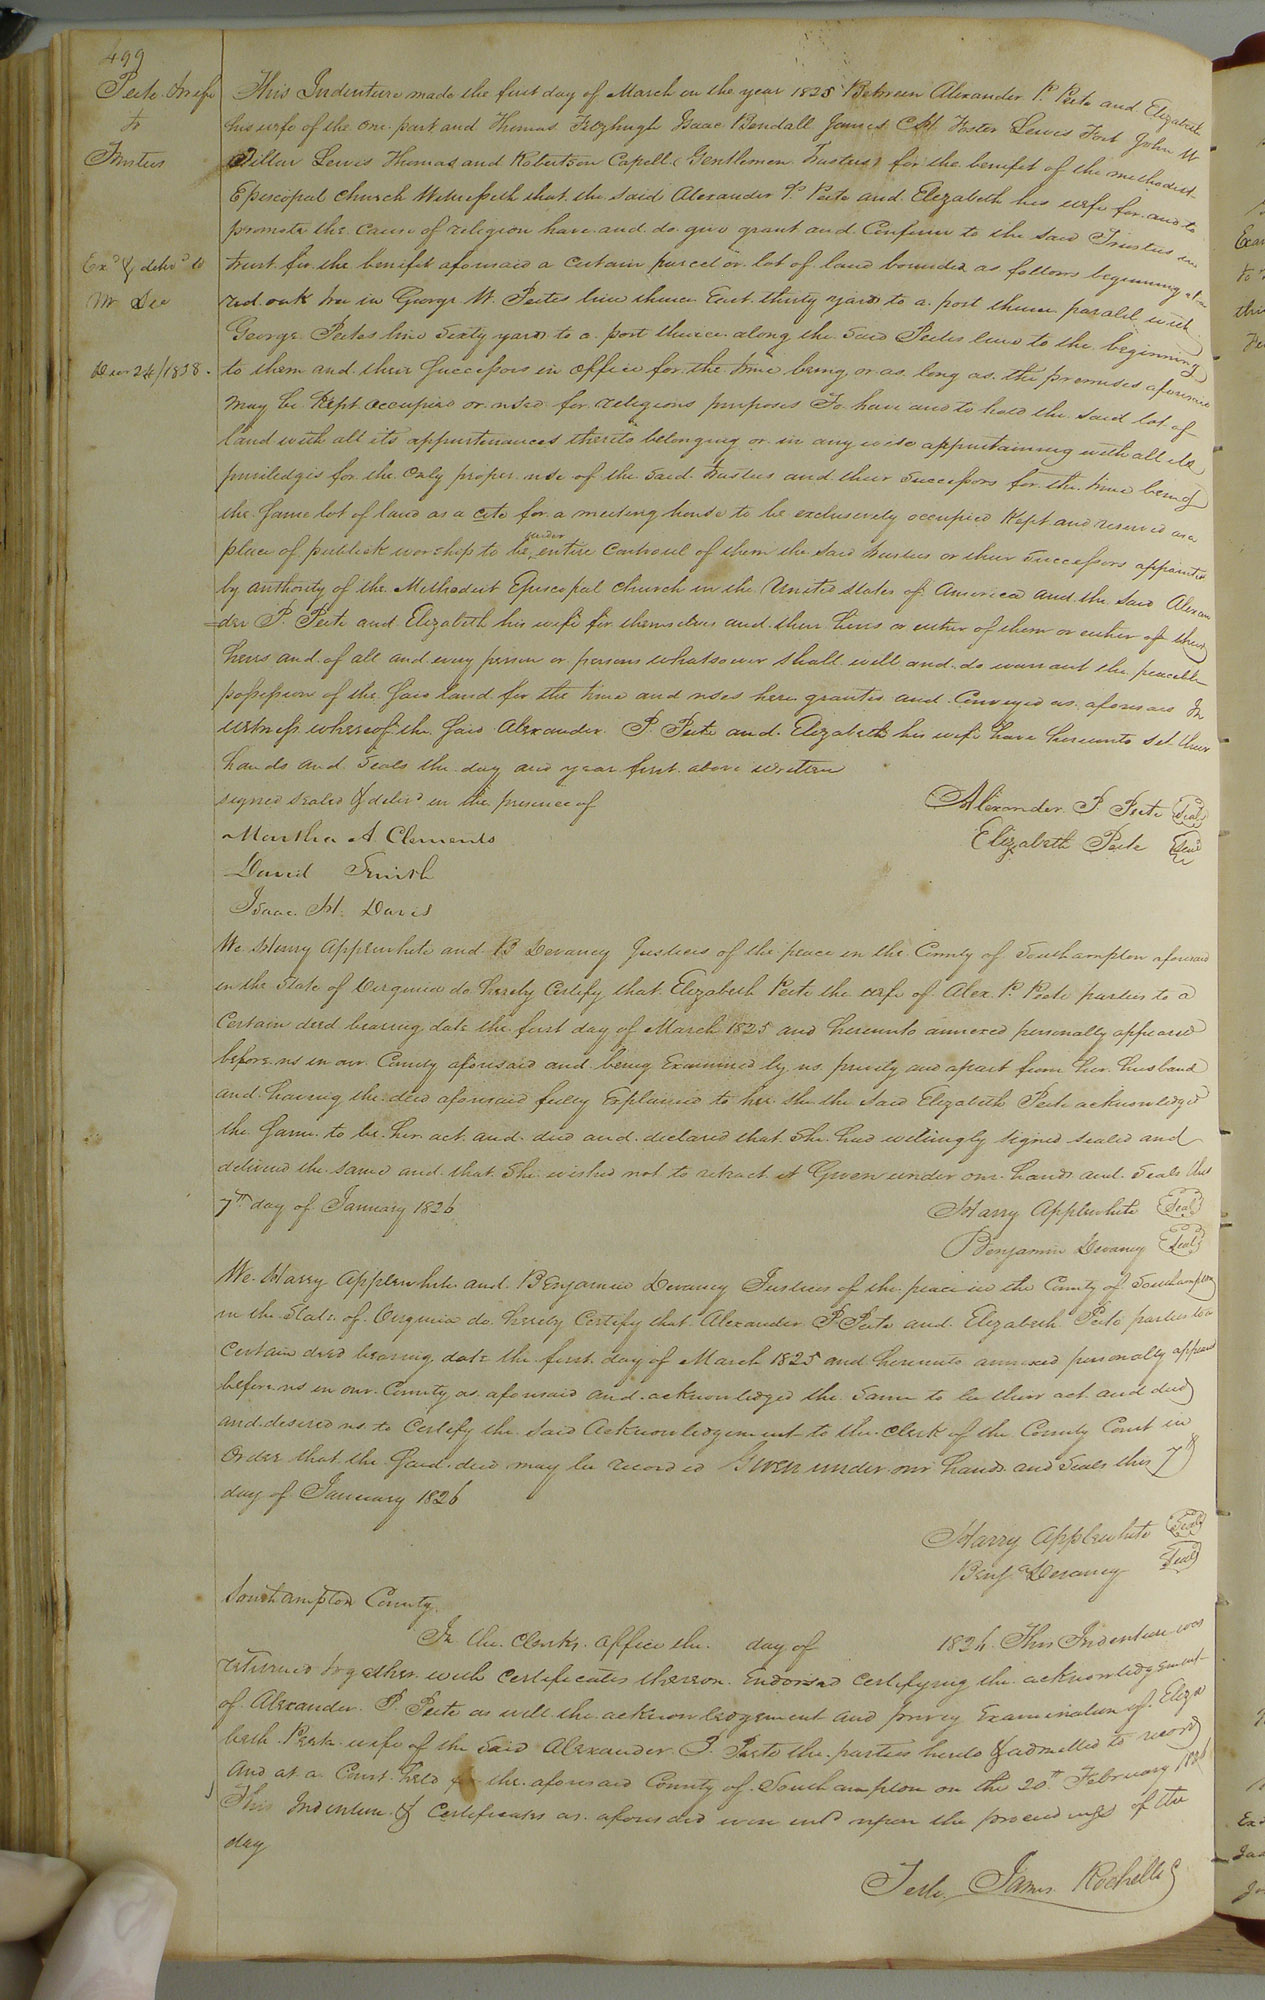 499
Peete & wife
to
Trustees
Exd & delivd to
Mr Lee
Decr 24/1838.
This Indenture made the first day of March in the year 1825 Between Alexander P. Peete and Elizabeth
his wife of the one part and Thomas Fitzhugh Isaac Kendall James Foster Lewis Fort John W
Dillon Lewis Thomas and Robertson Capell (Gentlemen Trustees) for the benefit of the methodist
Episcopal church Witnesseth that the said Alexander P. Peete and Elizabeth his wife for and to
promote the cause of religion have and do give grant and Confirm to the said Trustees in
trust for the benefit aforesaid a certain parcel or lot of land bounded as follows beginning at a
red oak tree in George W. Peetes line thence East thirty yards to a post thence paralel with
George Peetes line Sixty yards to a post thence along the said Peetes line to the beginning
to them and their Successors in office for the time being or as long as the premises aforesaid
may be Kept occupied or used for religious purposes To have and to hold the said lot of
land with all its appurtenances thereto belonging or in any wise appurtaining with all its
priviledges for the Only proper use of the said Trustees and their Successors for the time being
the same lot of land as a cite for a meeting house to be exclusively occupied Kept and reserved as a
place of publick worship to be under entire Controul of them the said Trustees or their Successors appointed
by authority of the Methodist Episcopal church in the United States of America and the said Alexan
=der P. Peete and Elizabeth his wife for themselves and their heirs or either of them or either of their
heirs and of all and every person or persons whatsoever shall will and do warrant the peaceable
possession of the said land for the time and uses here granted and Conveyed as aforesaid In
witness whereof the said Alexander P. Peete and Elizabeth his wife have hereunto set their
hands and Seals the day and year first above written
signed sealed & delivd in the presence of
Alexander P. Peete Seal
Martha A Clements
Elizabeth Peete Seal
David Smith
Isaac H. Davis
We Harry Applewhite and B Devaney Justices of the peace in the County of Southampton aforesaid
in the State of Virginia do hereby Certify that Elizabeth Peete the wife of Alex. P. Peete parties to a
Certain deed bearing date the first day of March 1825 and hereunto annexed personally appeared
before us in our County aforesaid and being Examined by us privily and apart from her husband
and having the deed aforesaid fully Explained to her she the said Elizabeth Peete acknowledged
the same to be her act and deed and declared that she had willingly signed sealed and
delivered the same and that she wished not to retract it Given under our hands and Seals this
7th day of January 1826
Harry Applewhite Seal
Benjamin Devaney Seal
We Harry Applewhite and Benjamin Devaney Justices of the peace in the County of Southampton
in the State of Virginia do hereby Certify that Alexander P Peete and Elizabeth Peete parties to a
Certain deed bearing date the first day of March 1825 and hereunto annexed personally appeared
before us in our County as aforesaid and acknowledged the same to be their act and deed
and desired us to Certify the said Acknowledgement to the clerk of the County Court in
Order that the said deed may be recorded Given under our hands and Seals this 7th
day of January 1826
Harry Applewhite Seal
Benj. Devaney Seal
Southampton County
In the Clerks office the day of 1826. This Indenture was
returned together with Certificates thereon Endorsed Certifying the acknowledgement
of Alexander P. Peete as well the acknowledgement and privy Examination of Eliza
beth Peete wife of the said Alexander P. Peete the parties hereto & admitted to record
And at a Court held for the aforesaid County of Southampton on the 20th February 1826
This Indenture & Certificates as aforesaid were entd upon the proceedings of the
day
Teste James Rochelle